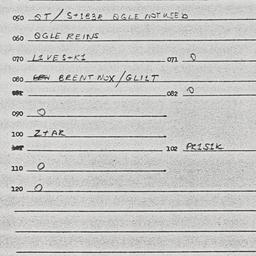 050 QT/ S+183R QGLE NOT USED
060 QGLE REINS
070 L1VES+K1 071 0
080 BRENTNOX/GLILT
082 0
090 0
100 Z+AR
102 PRISIK
110 0
120 0